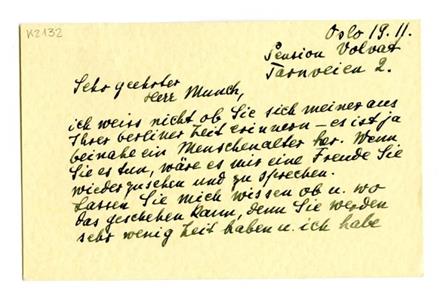 K2132
Oslo 19. 11.
Pension Volvat
Tarnveien 2.
Sehr geehrter
Herr Munch,
ich weiss nicht ob Sie sich meiner aus
Ihrer berliner Zeit erinnern – es ist ja
beinahe ein Menschenalter her. Wenn
Sie es tun, wäre es mir eine Freude Sie
wiederzusehen und zu sprechen.
Lassen Sie mich wissen ob u. wo
das geschehen kann, denn Sie werden
sehr wenig Zeit haben u. ich habe